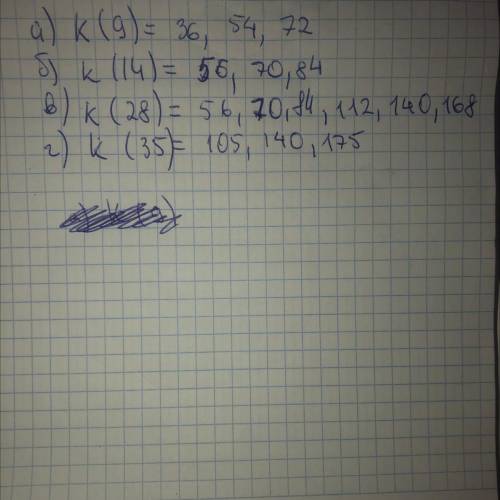 а) К (9) = 36, 54, 72
б) К (14) = 56, 70, 84
в) К (28) = 56, 70, 84, 112, 140, 168
г) К (35) = 105, 140, 175